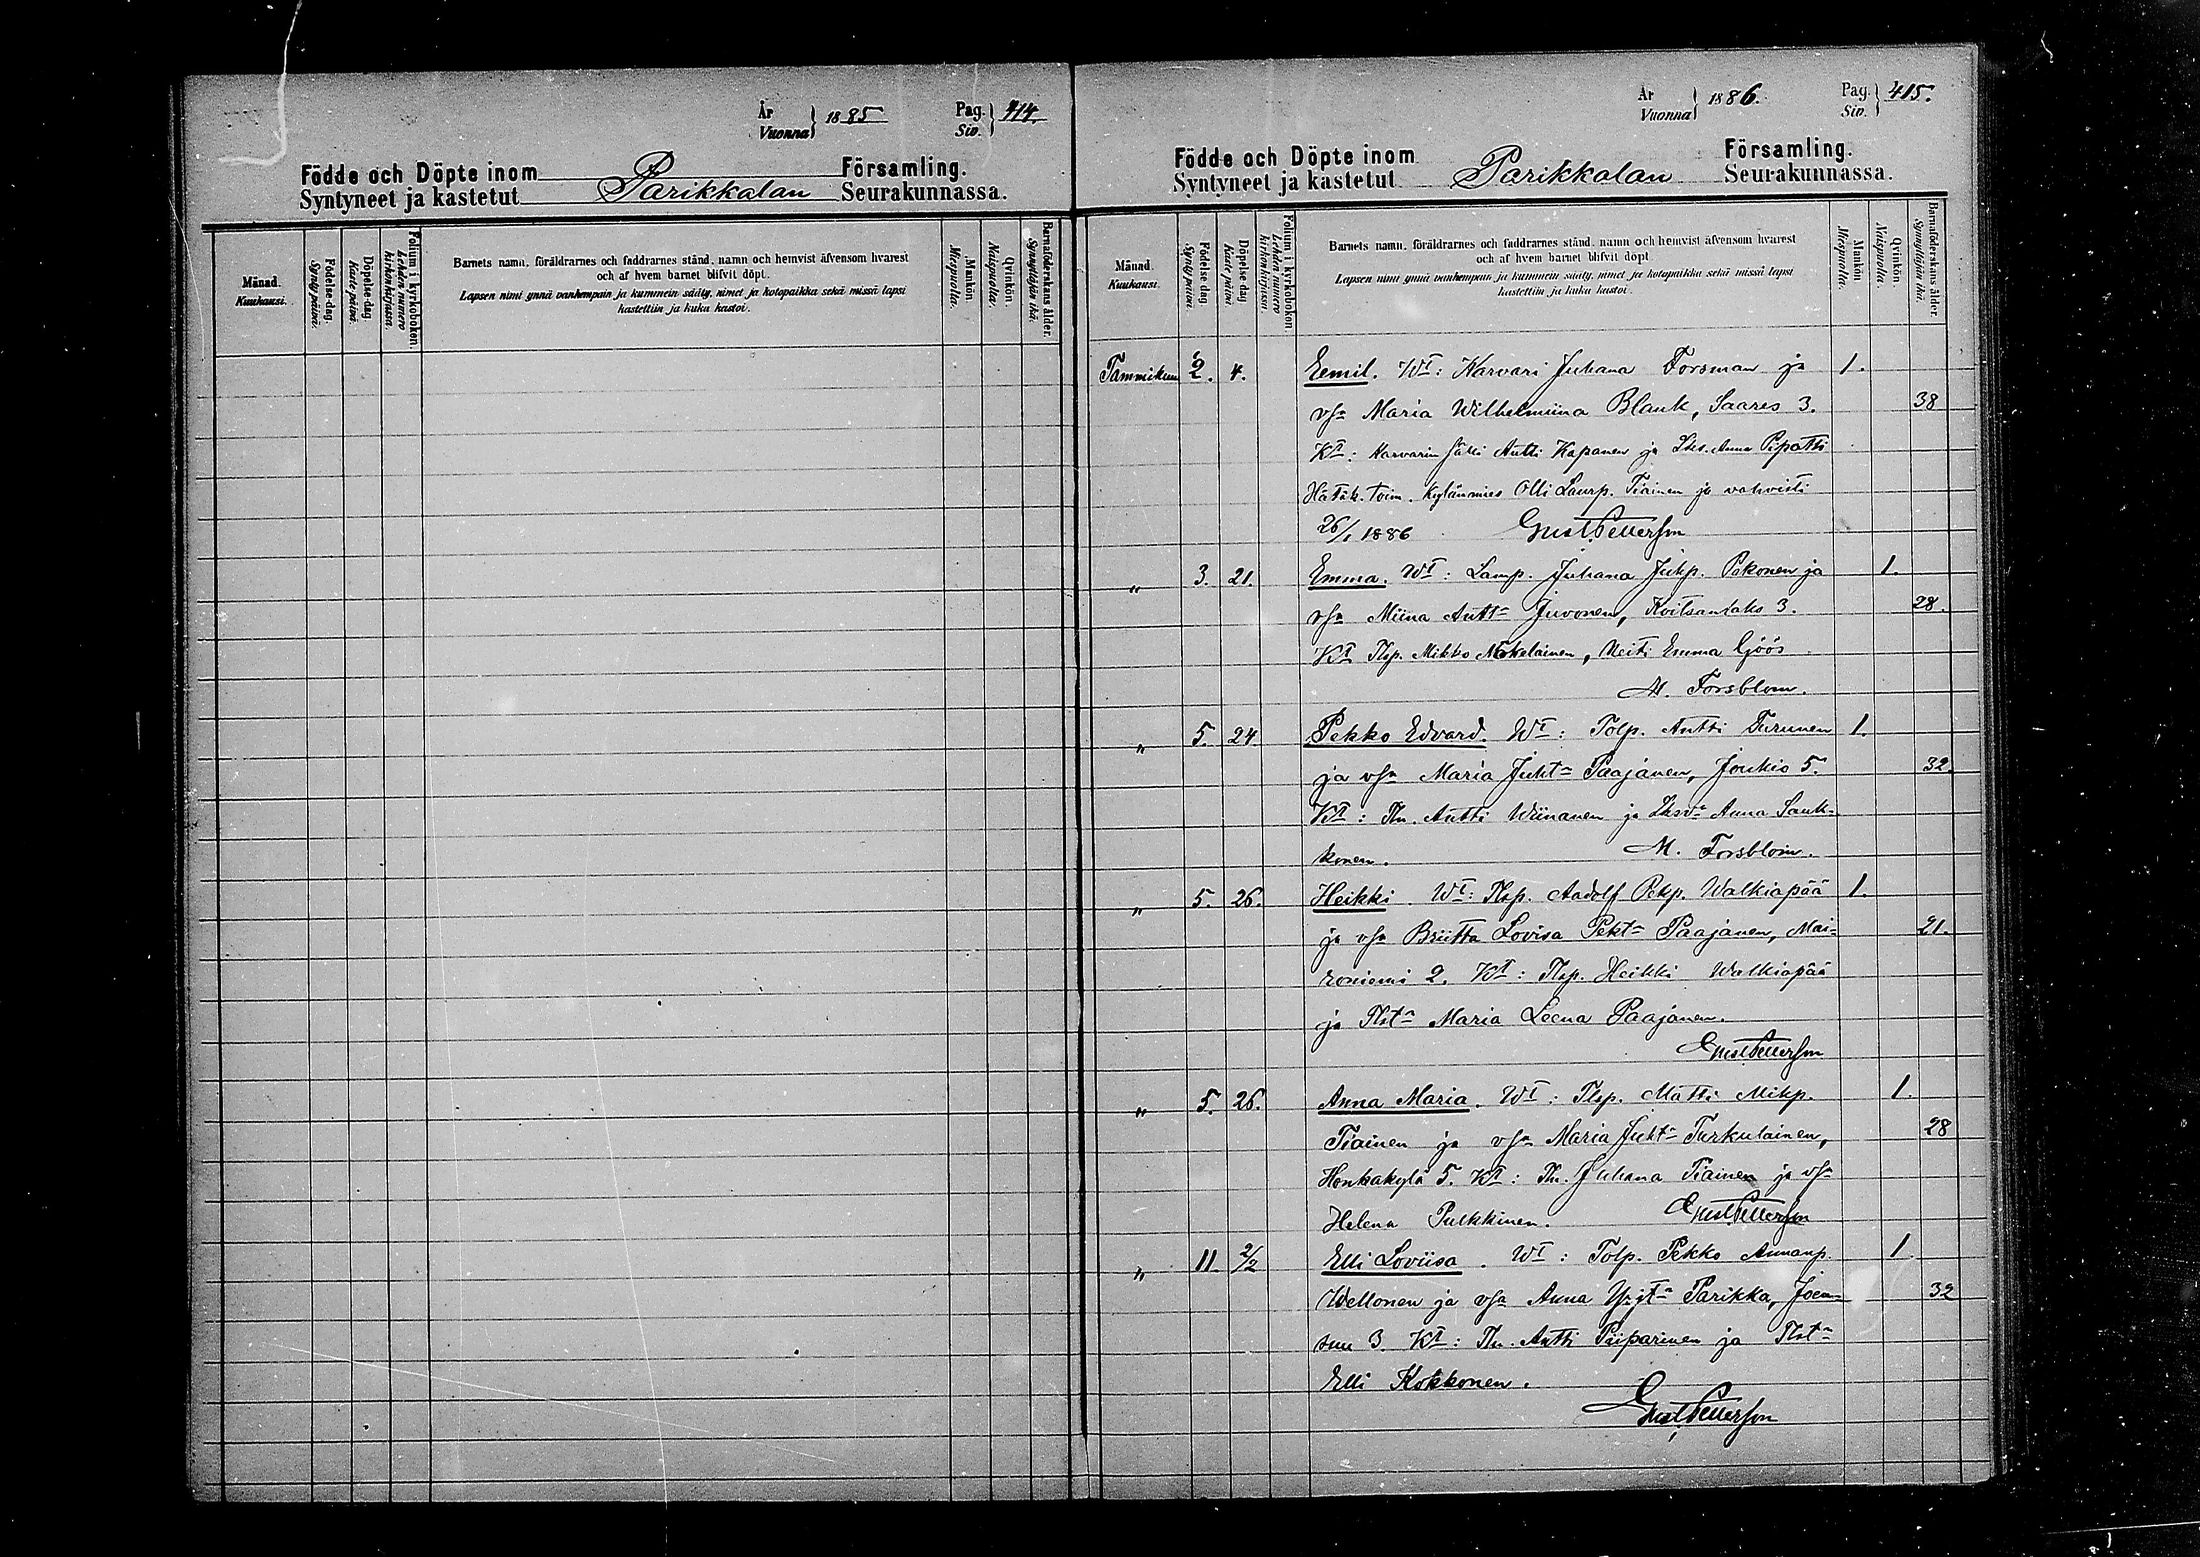 År
Vuonna } 1885 Pag.
Siv. } 414.
Födde och Döpte inom Församling.
Syntyneet ja kastetut Parikkalan Seurakunnassa.
Månad. Kuukausi.
Födelse-dag. Synty päivä.
Döpelse-dag. Kaste päivä.
Folium i kyrkoboken. Lehden numero kirkonkirjassa.
Barnets namn, föräldrarnes och faddrarnes stånd, namn och hemvist äfvensom hvarest
och af hvem barnet blifvit döpt.
Lapsen nimi ynnä vanhempain ja kummein sääty, nimet ja kotopaikka sekä missä lapsi
kastettiin ja kuka kastoi.
Mankön. Miespuolia.
Qvinkön. Naispuolia.
Barnaföderskans ålder. Synnyttäjän ikä.
År
Vuonna } 1886. Pag.
Siv. } 415.
Födde och Döpte inom Församling.
Syntyneet ja kastetut Parikkalan Seurakunnassa.
Månad. Kuukausi.
Födelse dag. Synty päivä.
Döpelse dag. Kaste päivä.
Folium i kyrkobokon. Lehden numero kirkonkirjassa.
Barnets namn, föräldrarnes och faddrarnes stånd, namn och hemvist äfvensom hvarest
och af hvem barnet blifvit döpt.
Lapsen nimi ynnä vanhempain ja kummein sääty, nimet ja kotopaikka sekä missä lapsi
kastettiin ja kuka kastoi.
Mankön Miespuolia.
Qvinkön Naispuolia.
Barnaföderskans ålder Synnyttäjän ikä.
Tammikuu 2. 4. Eemil. Wt: Karvari Juhana Forsman ja 1.
vsa Maria Wilhelmiina Blank, Saares 3. 38
Kt: Karvarin sälli Antti Kapanen ja Anna Pipatti
Hätäk. toim. Kylänmies Olli Laurp. Tiainen ja vahvisti
26/1 1886 Gust Petterson
" 3. 21. Emma. Wt: Lamp. Juhana Juhp. Pekonen ja 1.
vsa Miina Anttr Juvonen, Koitsanlaks 3. 28.
Kt Tlsp. Mikko Mikkelainen, Neiti Emma Göös
M. Forsblom.
" 5. 24 Pekko Edvard. Wt: Tolp. Antti Turunen 1.
ja vsa Maria Juhtr Paajanen, Joukio 5. 32.
Kt: Tln. Antti Wiinanen ja Anna Sauk-
konen. M. Forsblom.
" 5. 26. Heikki. Wt: Tlsp. Aadolf Pekp. Walkiapää 1.
ja vsa Briitta Lovisa Pektr Paajanen, Mai- 21.
roniemi 2. Kt: Tlsp. Heikki Walkiapää
ja Tlstr Maria Leena Paajanen.
Gust Petterson
" 5. 26. Anna Maria. Wt: Tlsp. Matti Mikp. 1.
Tiainen ja vsa Maria Juhtr Turkulainen, 28
Honkakylä 5. Kt: Tln. Juhana Tiainen ja vsa
Helena Pulkkinen. Gust Petterson
" 11. 2/2 Elli Loviisa. Wt: Tolp. Pekko Annanp. 1.
Wellonen ja vsa Anna Yrjtr Parikka, Joen- 32
suu 3. Kt: Tln. Antti Piiparinen ja Tlstr
Elli Kokkonen.
Gust Petterson